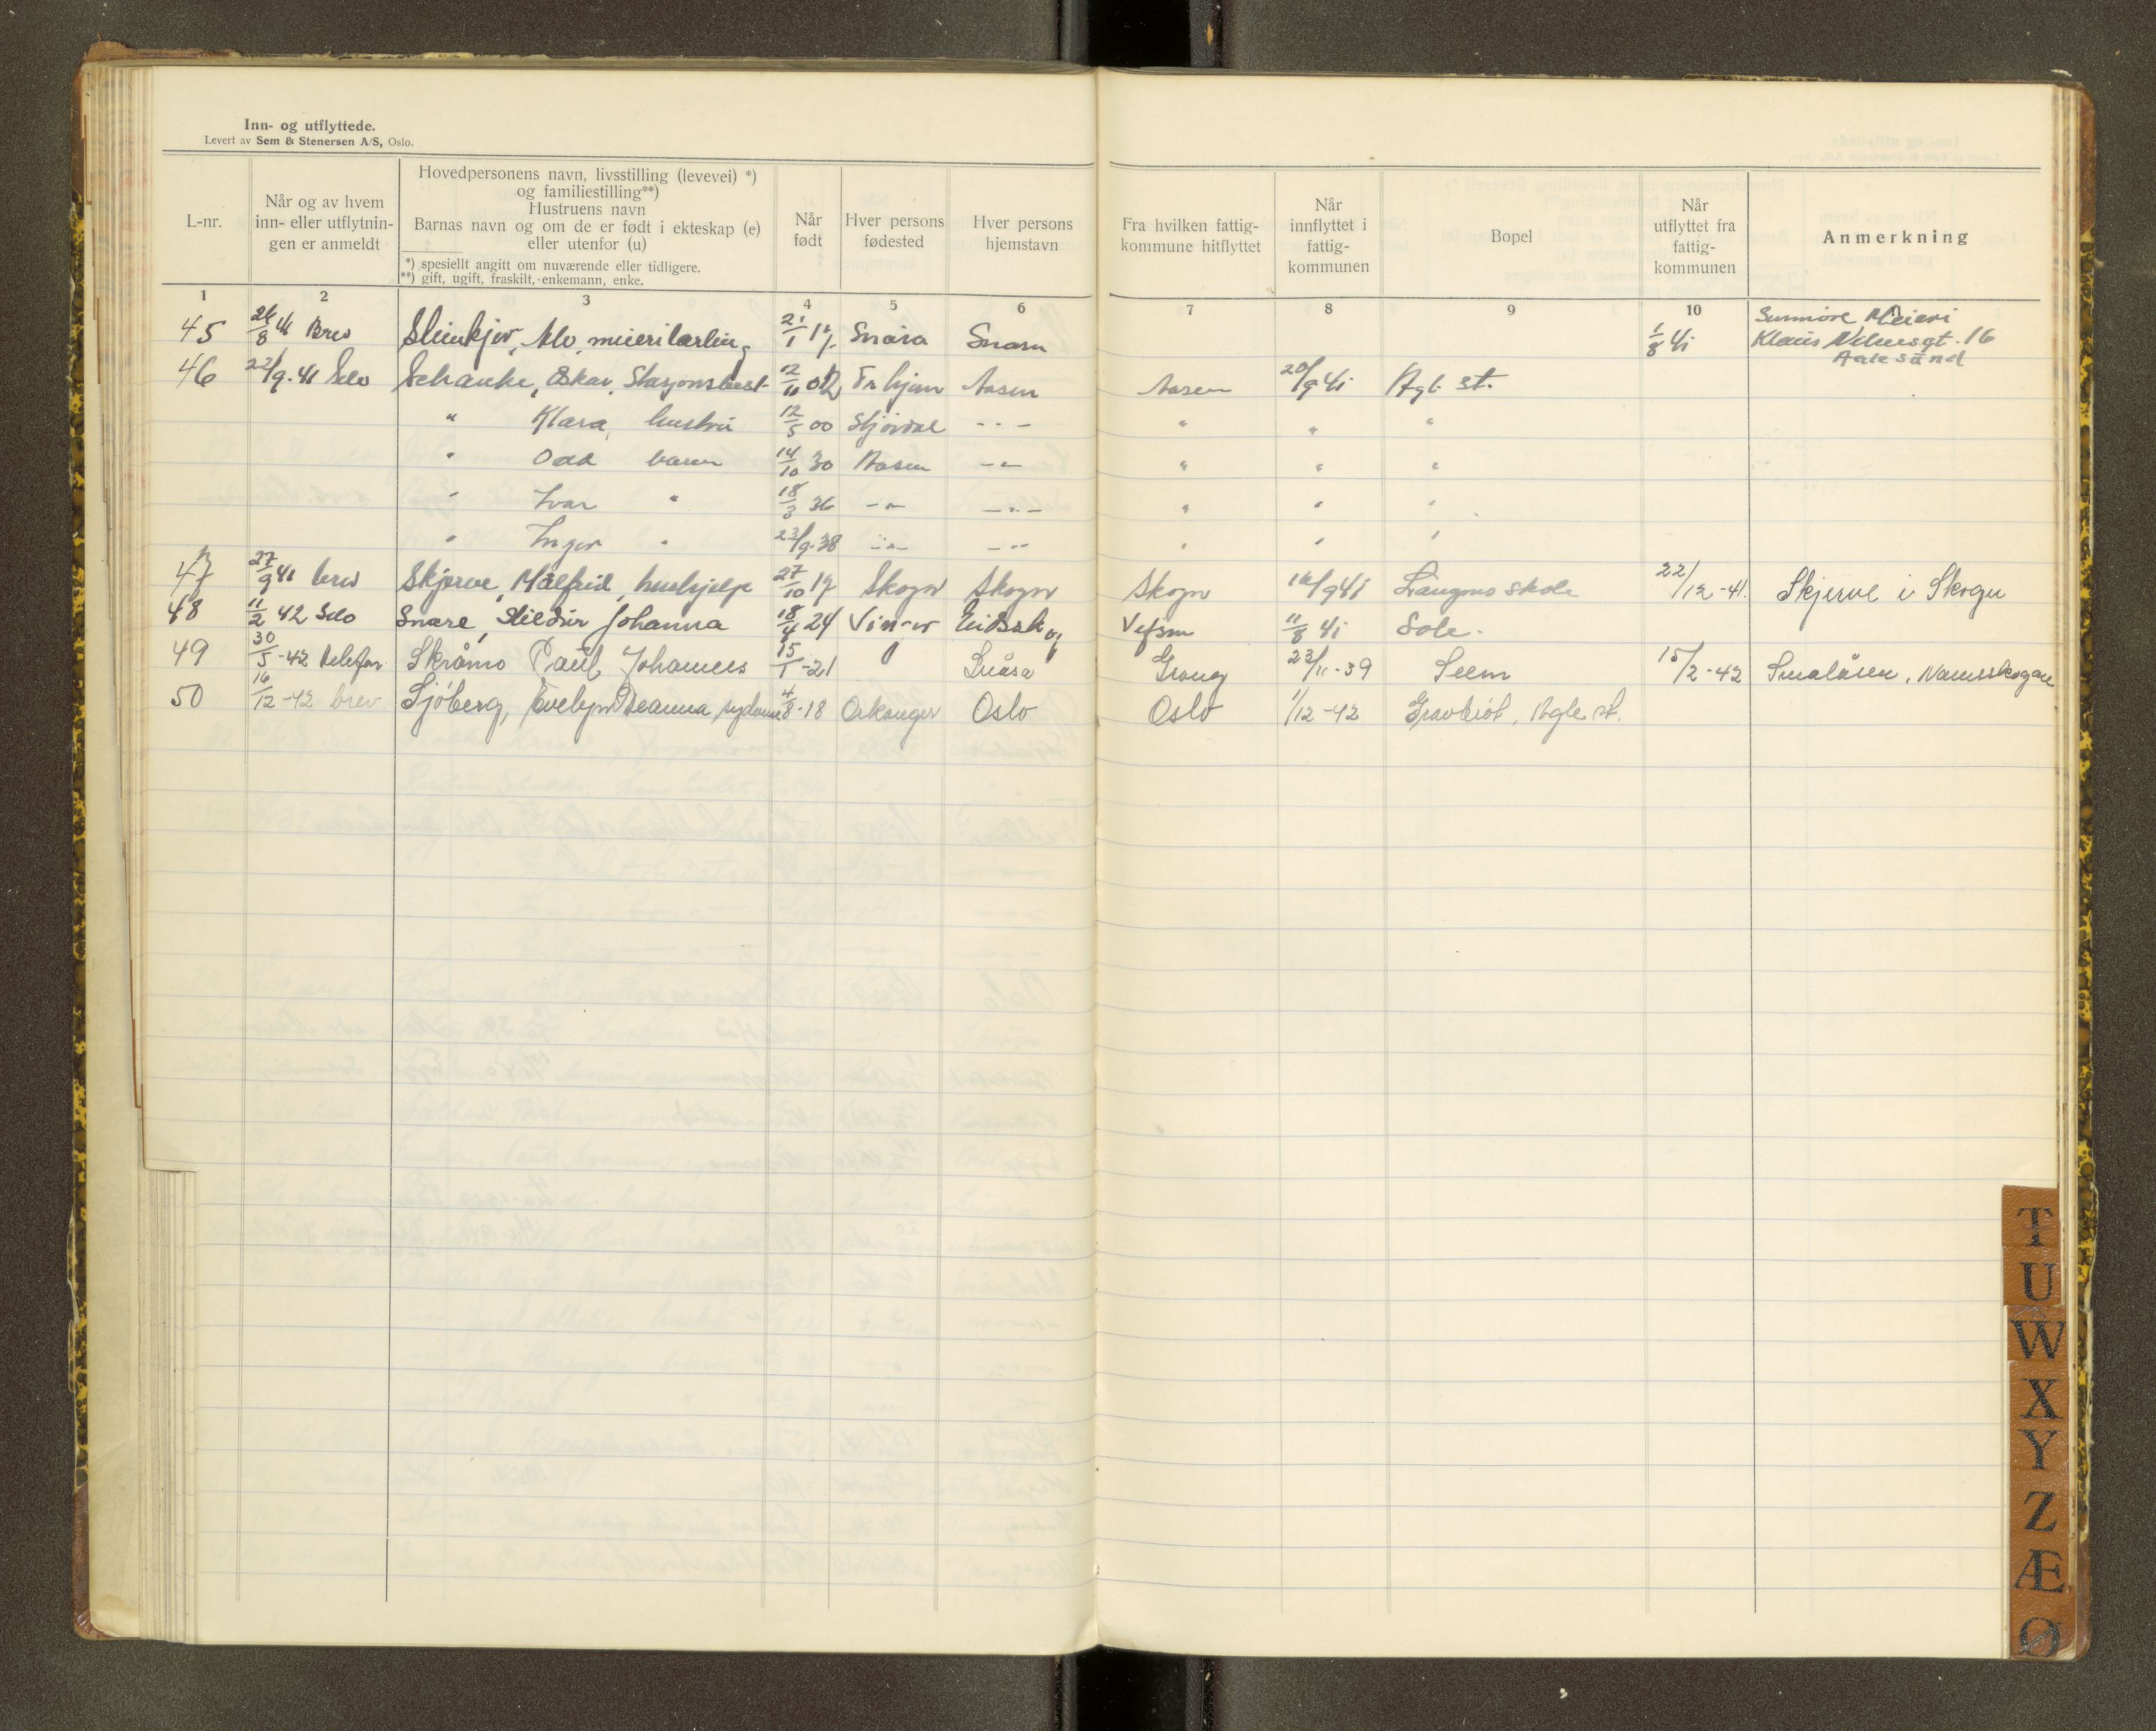 Inn- og utflyttede.
Levert av Sem & Stenersen A/S, Oslo.
L-nr.
Når og av hvem
inn- eller utflytnin-
gen er anmeldt
Hovedpersonens navn, livsstilling (levevei) *)
og familiestilling**)
Hustruens navn
Barnas navn og om de er født i ekteskap (e)
eller utenfor (u)
*) spesiellt angitt om nuværende eller tidligere.
**) gift, ugift, fraskilt, enkemann, enke.
Når
født
Hver persons
fødested
Hver persons
hjemstavn
Fra hvilken fattig-
kommune hitflyttet
Når
innflyttet i
fattig-
kommunen
Bopel
Når
utflyttet fra
fattig-
kommunen
Anmerkning
1 2 3 4 5 6 7 8 9 10 11
45 26/8 41 Brev Steinkjer, Alv, meierilærling 21/1 Snåsa Snåsa 1/8 41 Sunmøre Meieri
Klaus Nilsensgt. 16
Aalesund
46 22/9-41 Selv Schanke, Oskar, Stasjonsbest. 12/11 02 Tr.hjem Aasen Aasen 20/9 41 Agle st.
" Klara, hustru 12/5 00 Stjørdal -"- " " "
" Odd barn 14/10 30 Aasen -"- " " "
" Ivar " 18/3 36 -"- -"- " " "
" Inger " 23/9-38 -"- -"- " " "
47 27/9 41 brev Skjerve, Målfrid, hushjelp 27/10 19 Skogn Skogn Skogn 16/9 41 Langmo skole 22/12-41. Skjerve i Skogn
48 11/2 42 Selv Snare, Johanna 18/4 24 Eidskog Vefsn 11/8 41 Sole.
49 30/5-42 telefon Skråmo Paul Johannes 15/1-21 Snåsa Grong 23/11-39 Seem 15/2-42 Smalåsen, Namsskogan
50 16/12-42 brev Sjöberg, Evelyn Deanna, sydame 4/8-18 Orkanger Oslo Oslo 1/12-42 Gravbrøt, Agle st.
T
U
W
X
Y
Z
Æ
Ø